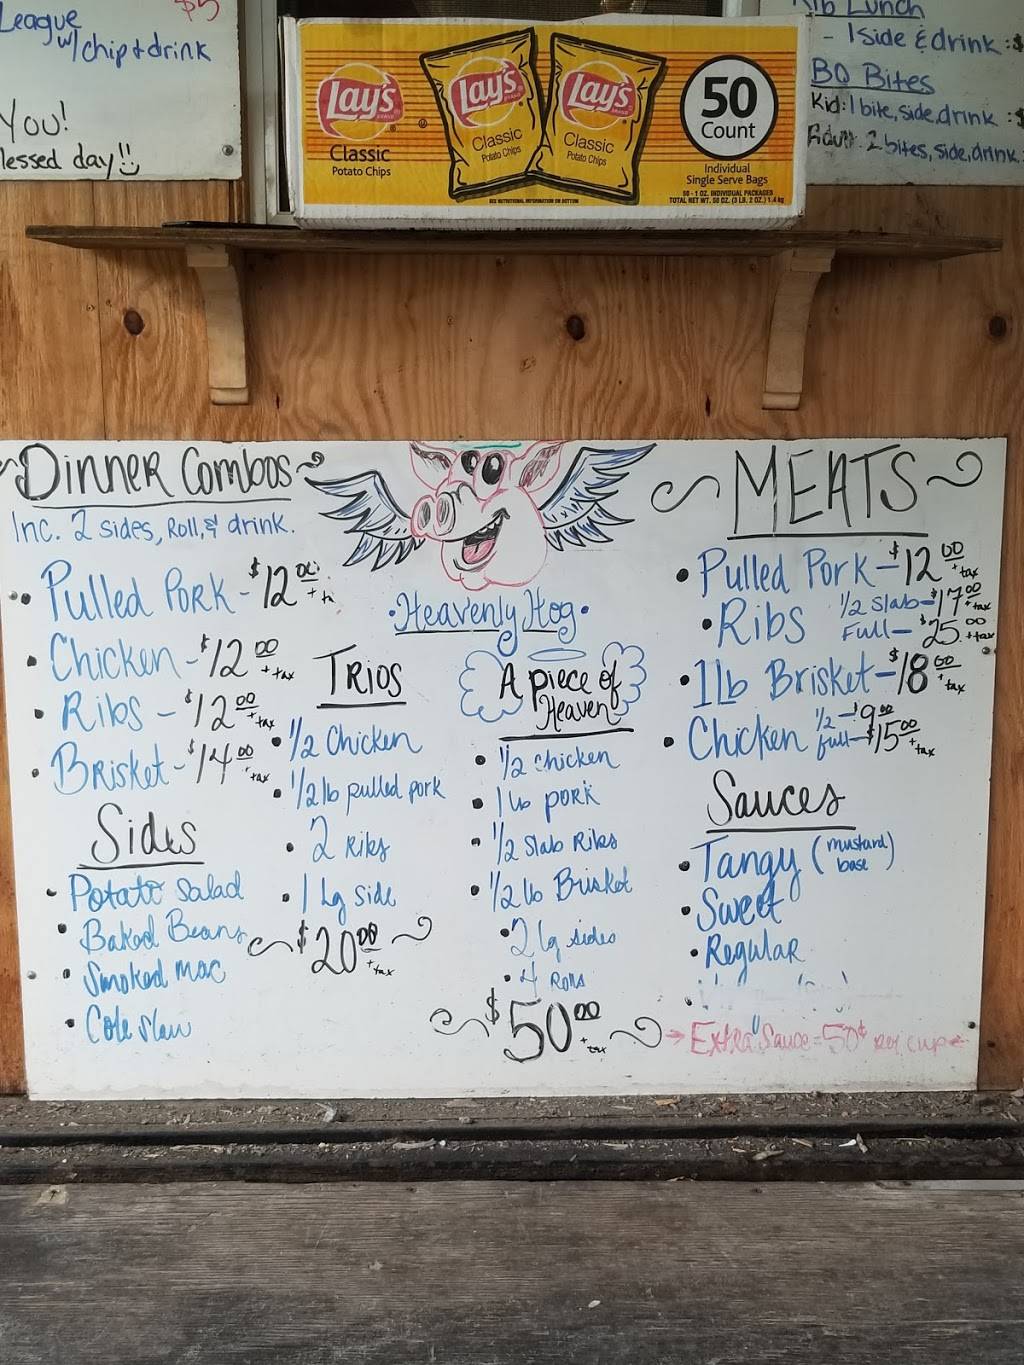 $5
League
w/ chip & drink
You!
lessed day!!
Lay's
Classic
Potato Chips
Lay's
Classic
Potato Chips
Lay's
Classic
Potato Chips
50
Count
Individual
Single Serve Bags
50 - 1 OZ. INDIVIDUAL PACKAGES
TOTAL NET WT. 50 OZ. (3 LB. 2 OZ.) 1.4 kg
SEE NUTRITIONAL INFORMATION ON BOTTOM
Rib Lunch
- 1 side & drink : $
BQ Bites
Kid: 1 bite, side, drink : $
Adult: 2 bites, side, drink.
Dinner Combos
Inc. 2 sides, Roll, & drink.
• Pulled Pork - $12.00 + ta
• Chicken - $12.00 + tax
• Ribs - $12.00 + tax
• Brisket - $14.00 + tax
Sides
• Potato Salad
• Baked Beans
• Smoked mac
• Cole slaw
• Heavenly Hog •
Trios
• 1/2 Chicken
• 1/2 lb pulled pork
• 2 Ribs
• 1 Lg side
$20.00 + tax
A piece of
Heaven
• 1/2 chicken
• 1 lb pork
• 1/2 slab Ribs
• 1/2 lb Brisket
• 2 lg sides
• 4 Rolls
$50.00 + tax
MEATS
• Pulled Pork - $12.00 + tax
• Ribs 1/2 slab - $17.00 + tax
Full - $25.00 + tax
• 1 lb Brisket - $18.00 + tax
• Chicken 1/2 - $9.00
full - $15.00 + tax
Sauces
• Tangy (mustard base)
• Sweet
• Regular
→ Extra Sauce = 50¢ per cup ←